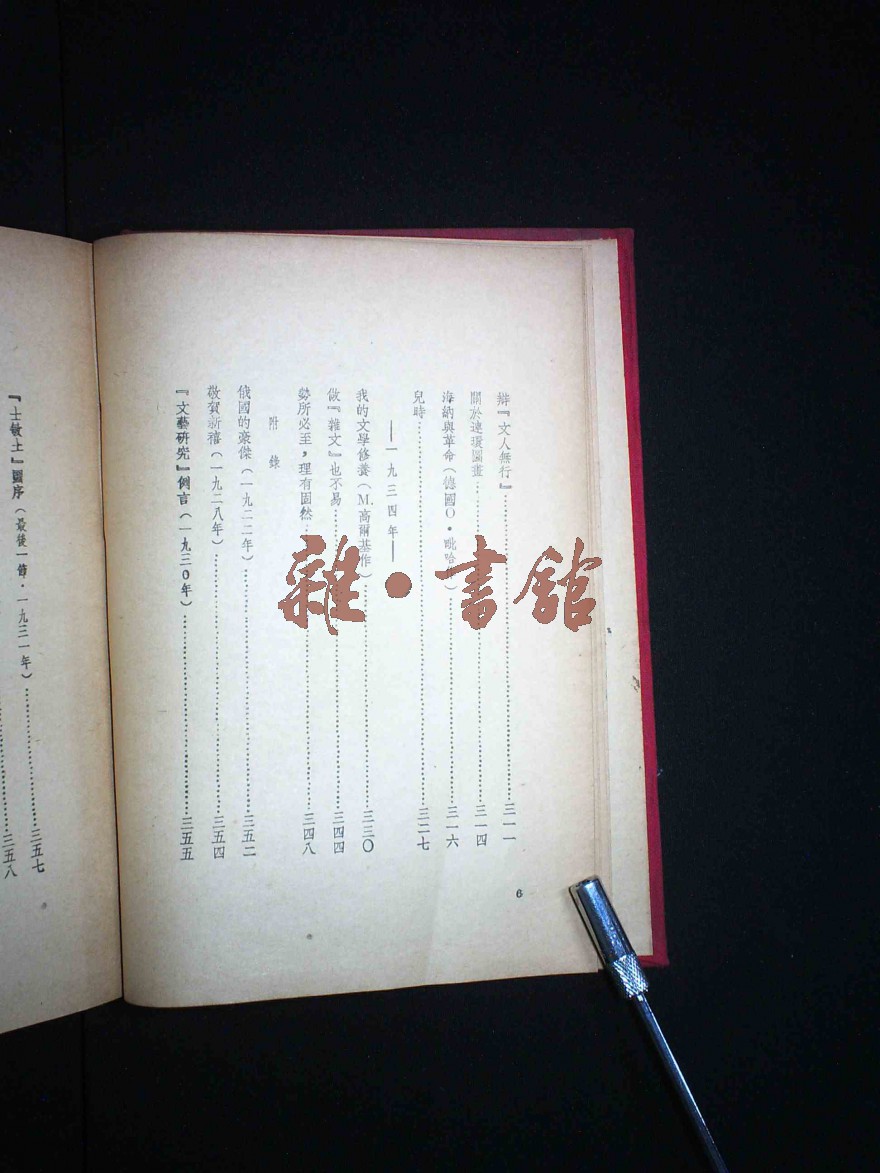 辯『文人無行』…………三一一
關於連環圖畫…………三一四
海納與革命(德國O·毗哈作)…………三一六
兒時…………三二七
——一九三四年——
我的文學修養(M.高爾基作)…………三三〇
做『雜文』也不易…………三四四
勢所必至,理有固然…………三四八
附錄
俄國的豪傑(一九二二年)…………三五二
敬賀新禧(一九二八年)…………三五四
『文藝研究』例言(一九三〇年)…………三五五
6
『士敏土』圖序(最後一節·一九三一年)…………三五七
…………三五八
雜·書館